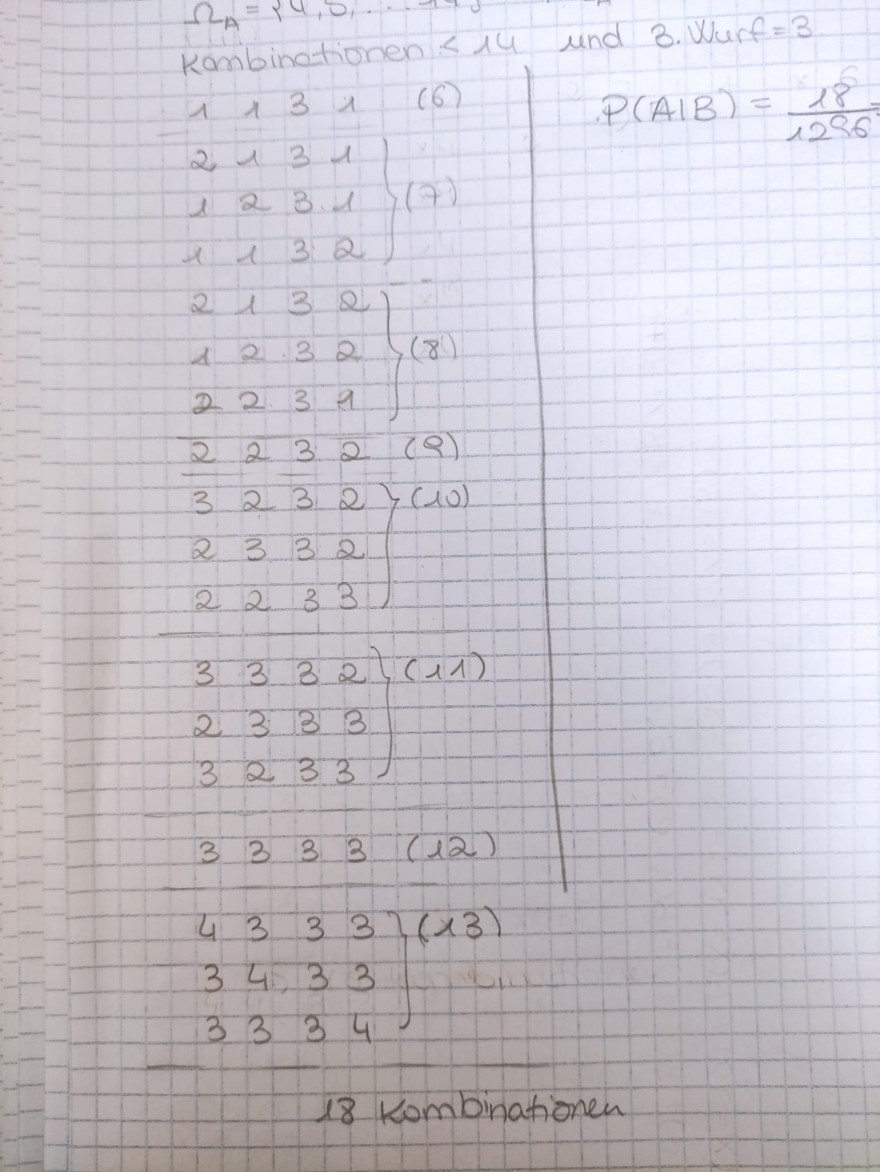 Ω_A = {4, 5, ... 14}
Kombinationen < 14 und 3. Wurf = 3
1 1 3 1 (6)
2 1 3 1
1 2 3 1 (7)
1 1 3 2
2 1 3 2
1 2 3 2 (8)
2 2 3 1
2 2 3 2 (9)
3 2 3 2 (10)
2 3 3 2
2 2 3 3
3 3 3 2 (11)
2 3 3 3
3 2 3 3
3 3 3 3 (12)
4 3 3 3 (13)
3 4 3 3
3 3 3 4
18 Kombinationen
P(A|B) = 18/1296 =